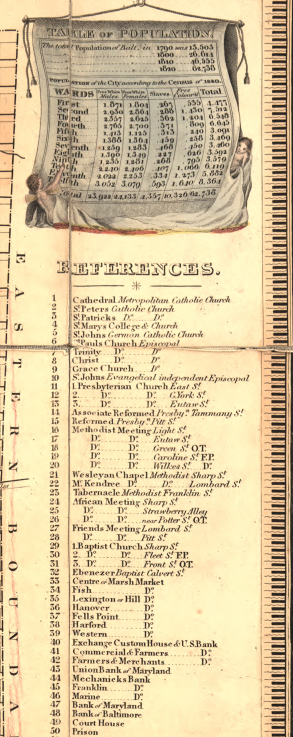 TABLE OF POPULATION.
The total Population of Balt. in 1790 was 13,503
1800 26,614
1810 46,555
1820 62,738
POPULATION of the City according to the Census of 1820.
WARDS Free White Males Free White Females Slaves Free Colour'd Total
First 1,871 1,804 267 535 4,477
Second
Third 2,557 2,625 362 1,204
Fourth 2,765 2,700 371 809 6,645
Fifth 1,413 1,325 313 240
Sixth 1,388 1,364 459 258 3,469
Seventh 1,259 1,283 468 450 3,460
Eighth 227 626
Ninth 1,268 795
Tenth 2,240 407 1,066 6,119
Eleventh 2,022 2,253 334 1,273 5,882
Twelfth 3,052 3,079 593 1,640 8,364
Total 23,922 24,133 4,357 10,326 62,738
REFERENCES.
1 Cathedral Metropolitan Catholic Church
2 St. Peters Catholic Church
3 St. Patricks Do. Do.
4 St. Marys College & Church
5 St. Johns German Catholic Church
6 St. Pauls Church Episcopal
7 Trinity Do. Do.
8 Christ Do. Do.
9 Grace Church Do.
10 St. Johns Evangelical independent Episcopal
11 1. Presbyterian Church East St.
12 2. Do. Do. G. York St.
13 3. Do. Do. Eutaw St.
14 Associate Reformed Presbyn. Tammany St.
15 Reformed Presbyn. Pitt St.
16 Methodist Meeting Light St.
17 Do. Do. Eutaw St.
18 Do. Do. Green St. O.T.
19 Do. Do. Caroline St. F.P.
20 Do. Do. Wilkes St. Do.
21 Wesleyan Chapel Methodist Sharp St.
22 Mc. Kendree Do. Do. Lombard St.
23 Tabernacle Methodist Franklin St.
24 African Meeting Sharp St.
25 Do. Do. Strawberry Alley
26 Do. Do. near Potter St. O.T.
27 Friends Meeting Lombard St.
28 Do. Do. Pitt St.
29 1. Baptist Church Sharp St.
30 2. Do. Do. Fleet St. F.P.
31 3. Do. Do. Front St. O.T.
32 Ebenezer Baptist Calvert St.
33 Centre or Marsh Market
34 Fish Do.
35 Lexington or Hill Do.
36 Hanover Do.
37 Fells Point Do.
38 Harford Do.
39 Western Do.
40 Exchange Custom House & U.S. Bank
41 Commercial & Farmers Do.
42 Farmers & Merchants Do.
43 Union Bank of Maryland
44 Mechanicks Bank
45 Franklin Do.
46 Marine Do.
47 Bank of Maryland
48 Bank of Baltimore
49 Court House
50 Prison
EASTERN BOUNDA